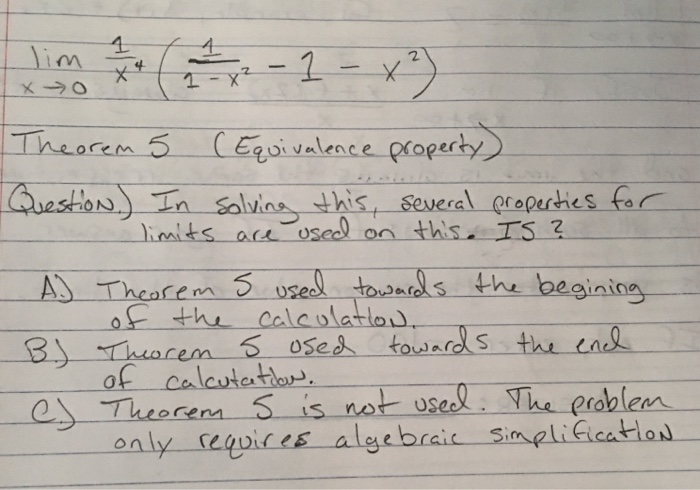 lim x→0 1/x⁴ ( 1/(1 - x²) - 1 - x² )
Theorem 5 (Equivalence property)
Question.) In solving this, several properties for
limits are used on this. IS ?
A.) Theorem 5 used towards the begining
of the calculation.
B.) Theorem 5 used towards the end
of calcutation.
C.) Theorem 5 is not used. The problem
only requires algebraic simplification